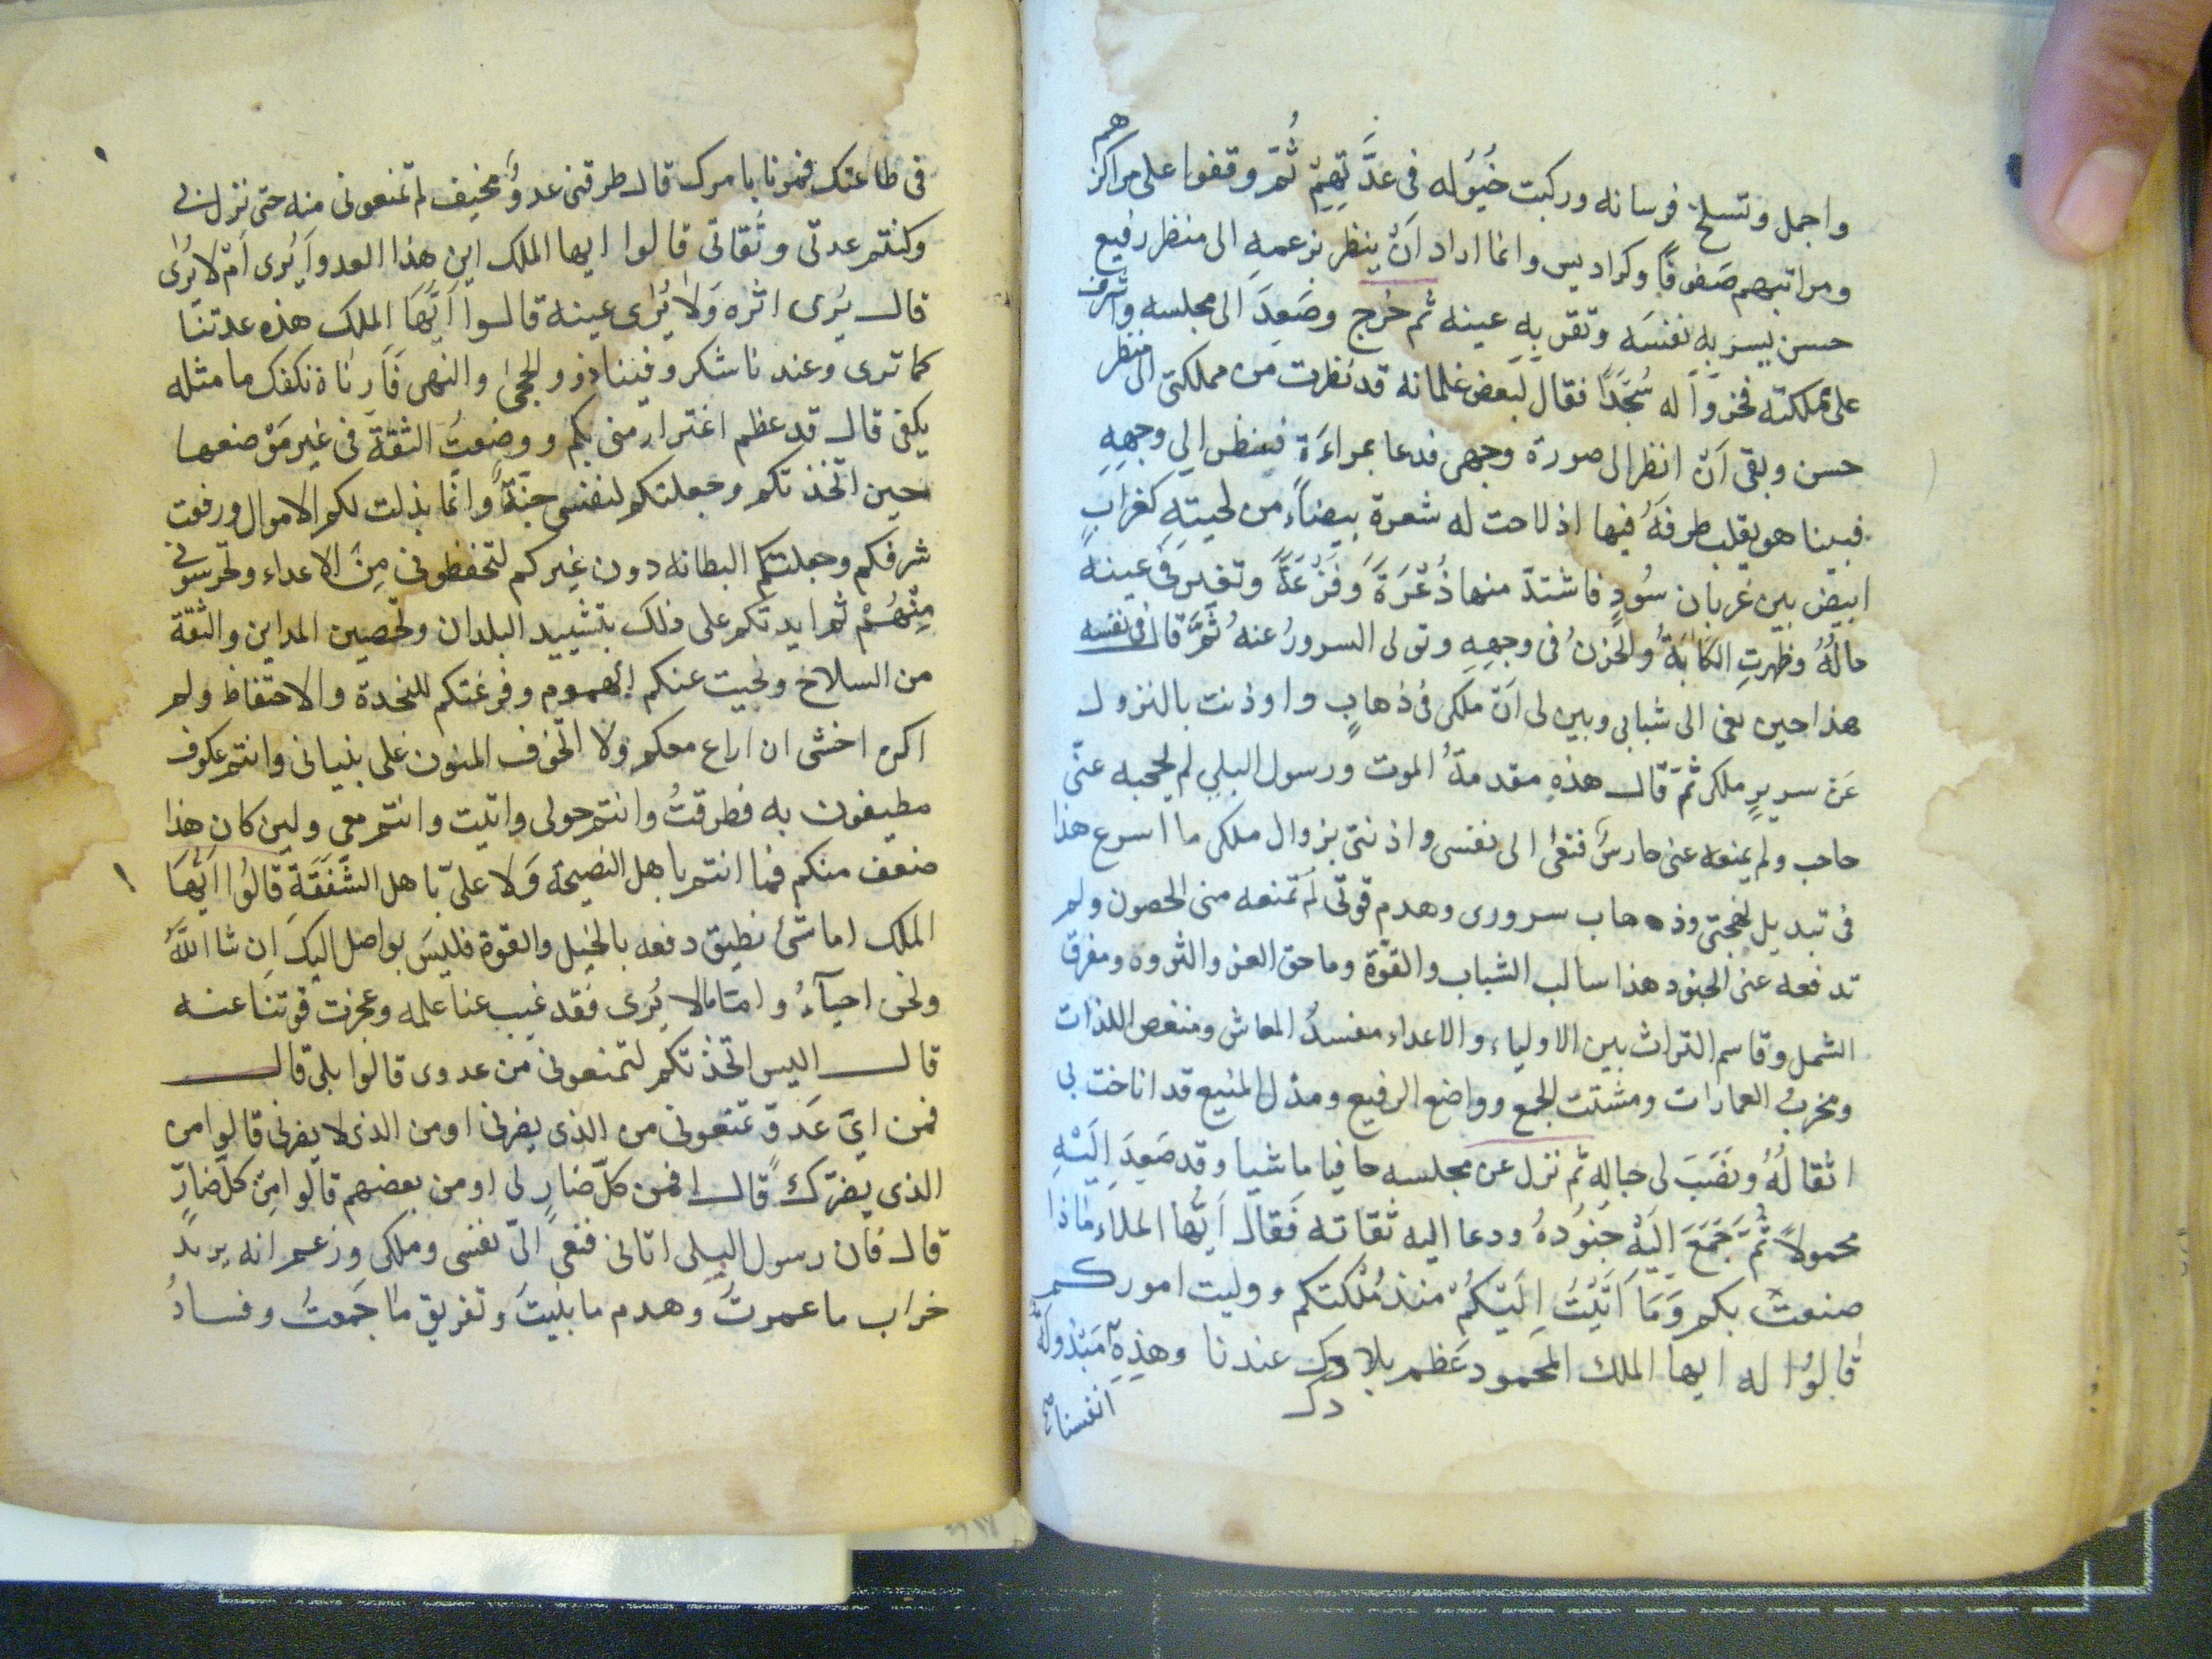 واجمل وتسلح فرسانه وركبت خُيُوله فى عدَّتِهِمْ ثُمّ وقفوا على مراكزهم
ومراتبهم صَفوفًا وكراديس وانما اراد اَنْ ينظر بزعمهِ الى منظر رفيع
حسن يسر به نفسَه وتقر به عينه ثم خرج وصَعِدَ الى مجلسه واشرف
على مملكته فخروا له سُجَّدًا فقال لبَعض غلمانه قد نظرت من مملكتى الى منظر
حسن وبقى اَن انظر الى صورة وجهى فدعا بمراءَة فينظر الى وجههِ
فبينا هو يقلب طرفَهُ فيها اذ لاحت له شعرة بيضاءُ من لحيتِهِ كغرابٍ
ابيض بين غربان سُودٍ فاشتدّ منها ذُعْرَةً وَفَزْعَةً وتغير فى عينه
حالُهُ وظهرتِ الكاٰبَةُ والحُزنُ فى وجههِ وتولى السرورُ عنهُ ثُمَّ قال فى نفسه
هذا حين نعى الى شبابى وبين لى اَنّ ملكى فى ذهابٍ واوذنت بالنزول
عَن سريرِ ملكى ثمّ قال هذهِ مقدمةُ الموت ورسول البلى لم يحجبه عنّى
حاجب ولم يمنعه عنى حارسٌ فنعٰى الى نفسى واذنتى بزوال ملكى ما اسرع هذا
فى تبديل لهجتى وذهاب سرورى وهدم قوتى لم تمنعه منى الحصون ولم
تدفعه عنى الجنود هذا سالب الشباب والقوّة وماحق العز والثروه ومفرق
الشمل وقاسم التراث بين الاولياء والاعداء مفسدُ المعاش ومنغص اللذات
ومخربُ العمارات ومشتت الجمع وواضع الرفيع ومذل المنيع قد اناخت بى
اثقالُهُ ونصَبَ لى حباله ثم نزل عن مجلسه حافيا ماشيا وقد صَعِدَ اِلَيْهِ
محمولاً ثُمَّ جَمَعَ اليَهْ جنُودهُ ودعا اليه ثقاته فَقال اَيّها الملاء ماذا
صنعت بكم وَمَا اَتَيْتُ اِلَيْكُمْ منذ مُلْكتكم ووليت اموركم
قالوُا له ايها الملك المحمود عَظم بلاوك عندنا وهذِهِ اَنفسنا مَبْذولةٌ
فى طاعتك فمرنا بامرك قال طرقنى عدوٌ مخيف لم تمنعونى منه حتى نزل بى
وكنتم عدتى وثقاتى قالوا ايها الملك اين هذا العدو اَيُرى اَمْ لا يُرٰى
قال يُرى اثره وَلا يُرٰى عينه قالوا اَيُّهَا الملك هذه عدتنا
كما ترى وعندنا شكر وفينا ذوو الحجٰى والنهى فَاَرِنَاه نكفك ما مثله
يكفى قال قد عظم اغترارٌ منى بكم ووضعتُ الثقةَ فى غير مَوْضعها
حين اتخذتكم وجعلتكم لنفسى جنّةً وانما بذلت لكم الاموال ورفعت
شرفكم وجعلتكم البطانه دون غيركم لتحفظونى مِنَ الاعداء وتحرسونى
مِنْهُمْ ثم ايدتكم على ذلك بتشييد البلدان وتحصين المداين والثقة
من السلاح ونحيت عنكم الهموم وفرغتكم للنجدة والاحتفاظ ولم
اكن اخشى ان اراع معكم ولا اتخوف المنون على بنيانى وانتم عكوف
مطيفون به فطرقتُ وانتم حولى واتيت وانتم معى ولين كان هذا
ضعف منكم فما انتم باهل النصيحة وَلا علىّ باهل الشَّفَقَةِ قالُوا اَيُّهَا
الملك اما شئ نطيق دفعه بالخيل والقوة فليسَ بواصل اليكَ اِن شا اللّهُ
ونحن احياءُ وامّا مالا يُرى فقد غيب عنا علمه وعجزت قوتنا عنه
قال اليس اتخذتكم لتمنعونى من عدوى قالوا بلى قال
فمن اىّ عَدوّ تمنعونى من الذى يضرنى او من الذى لا يضرنى قالوا من
الذى يضرّك قال افمن كلّ ضارٍ لى او من بعضهم قالوا مِن كلّ ضارّ
قال فان رسول البلى اتانى فنعى الىّ نفسى وملكى وزعم انه يريد
خراب ما عمرتُ وهدم ما بنيتُ وتفريق ما جَمعتُ وفسادُ